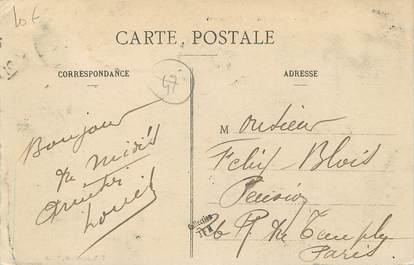 10€
CARTE POSTALE
CORRESPONDANCE
ADRESSE
47
Bonjour
du Midi
Louis
Monsieur
Felix Blois
Pension
du Temple
Paris
Collection